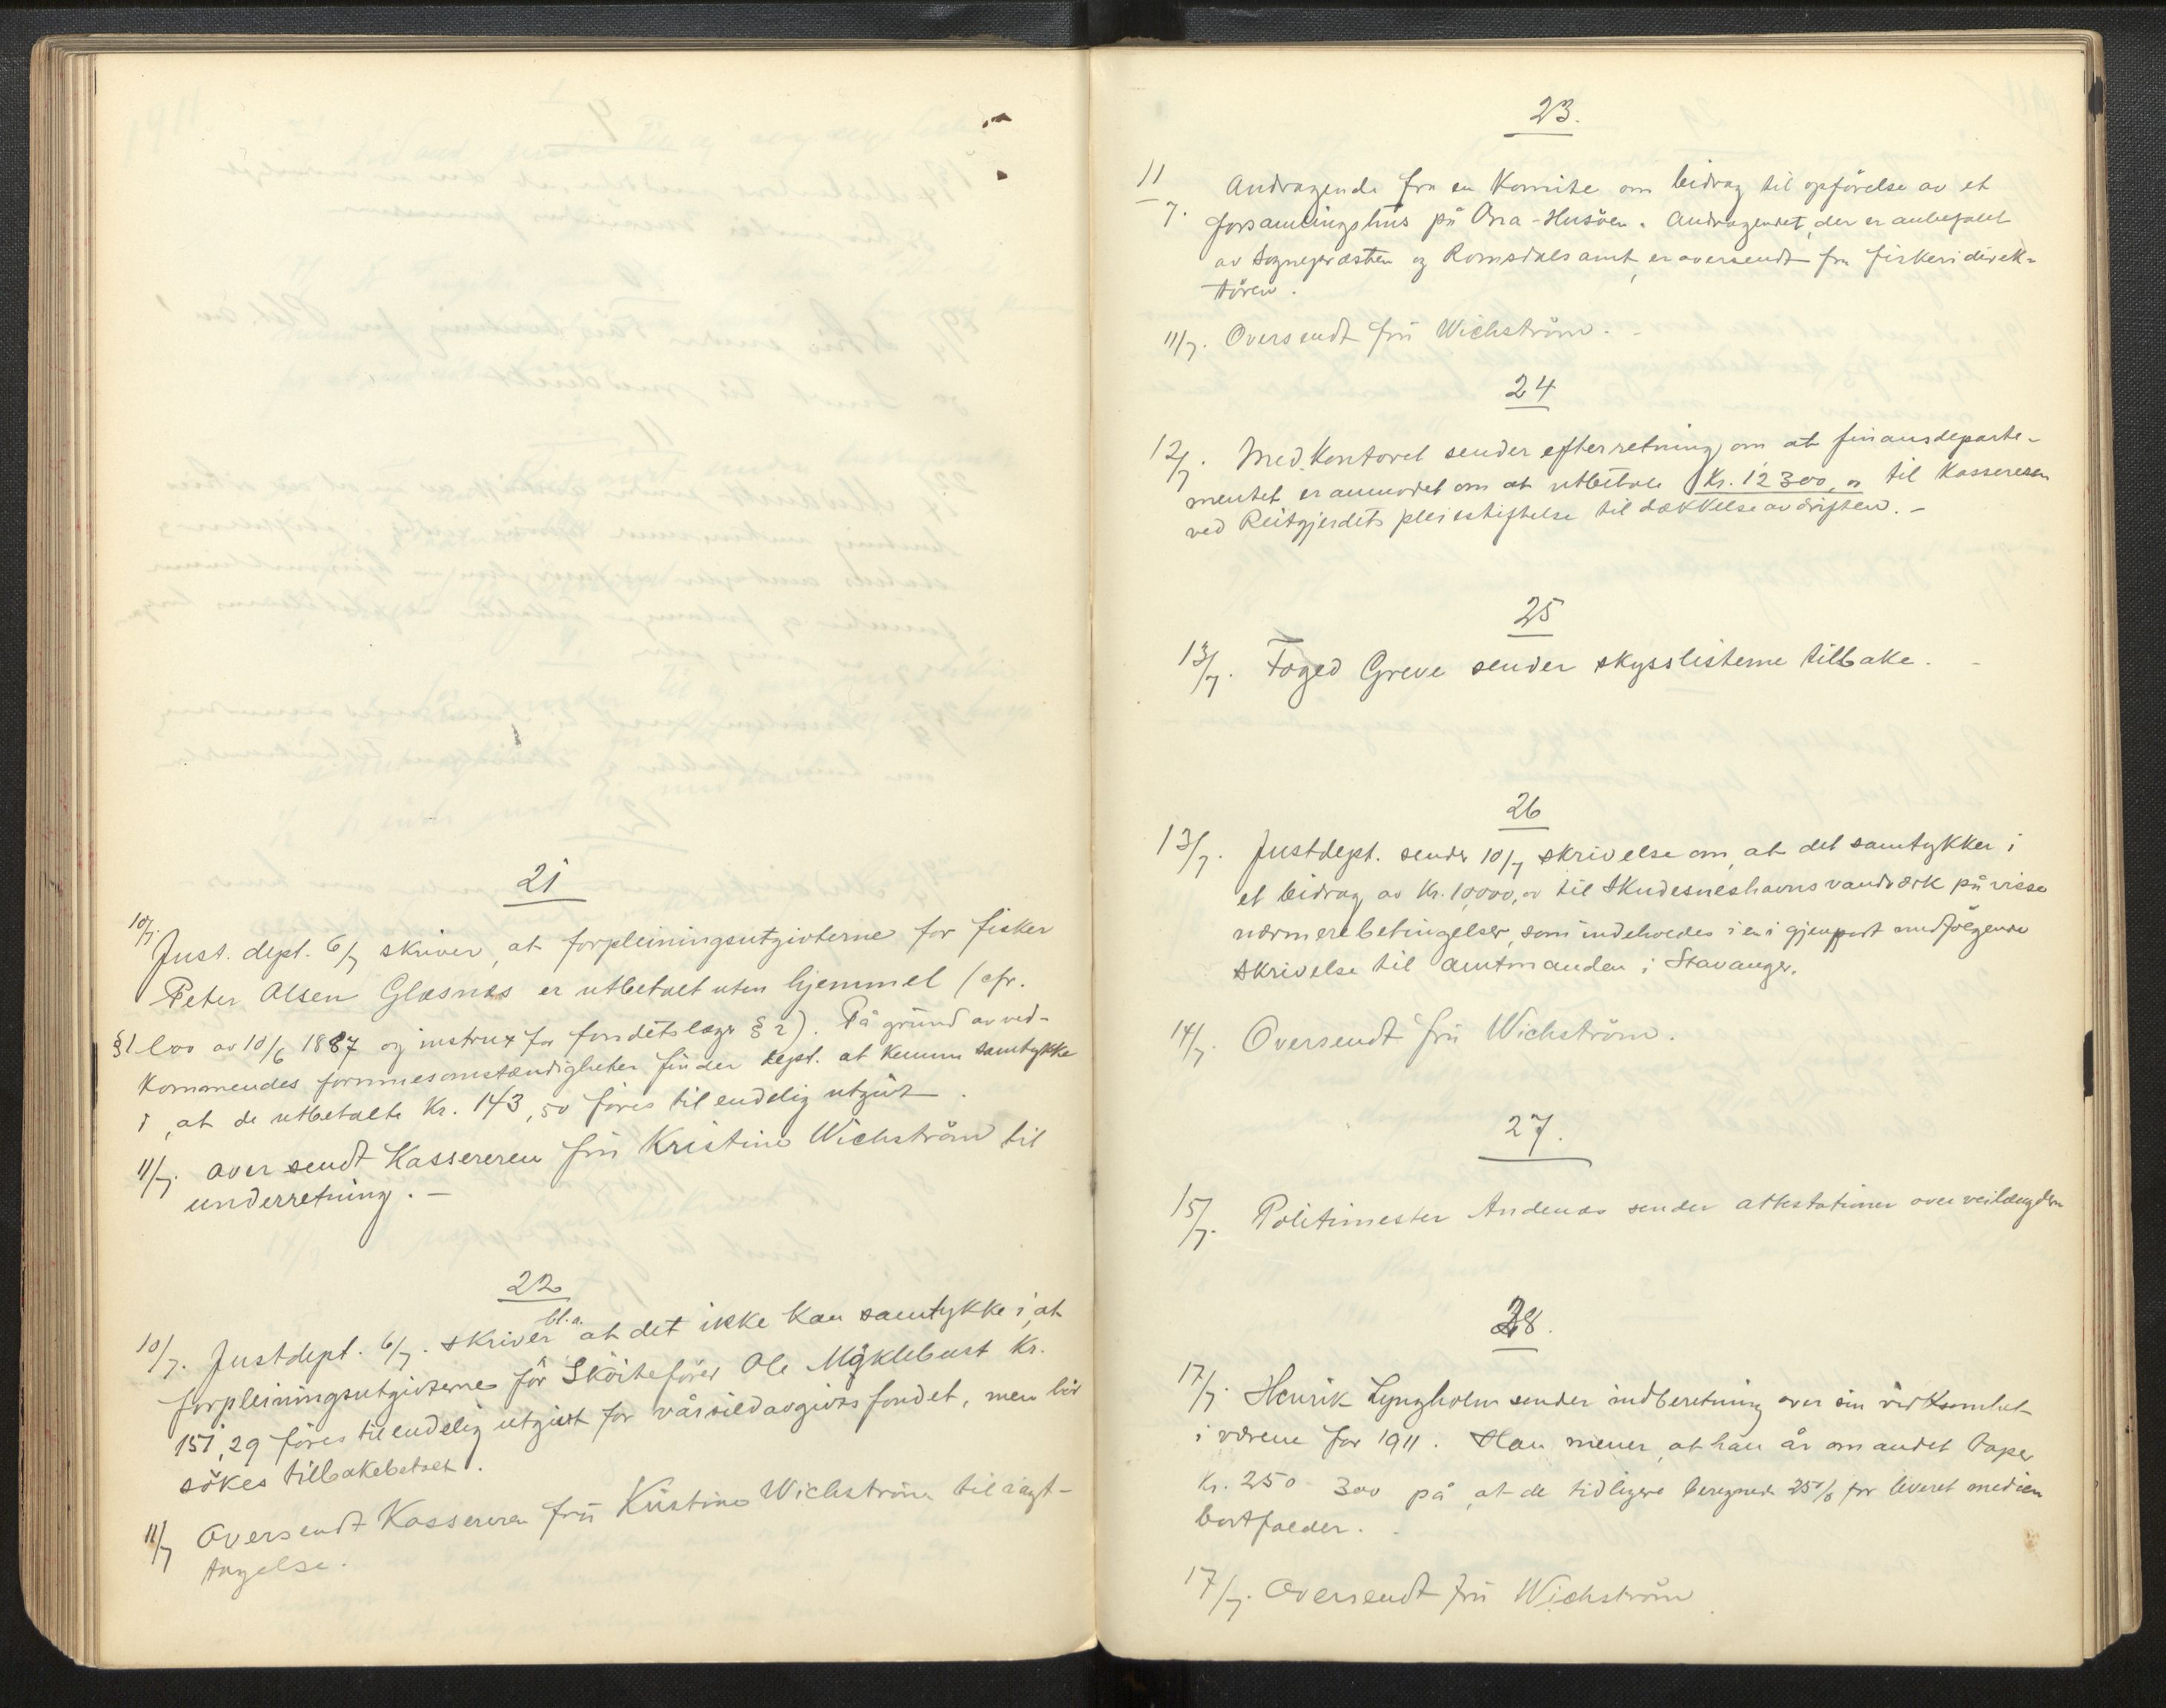 21
10/7. Just. dept. 6/7 skriver, at forpleiningsutgivterne for fisker
Peter Olsen Glæsnes er utbetalt uten hjemmel (cfr.
§1 lov av 10/6 1887 og instrux for fondets læge § 2). På grund av ved-
kommendes formuesomstændigheter finder dept. at kunne samtykke
i, at de utbetalte Kr. 143,50 föres til endelig utgivt.
11/7. oversendt Kassereren fru Kristine Wichström til
underretning. -
22
bl.a.
10/7. Justdept. 6/7. skriver at det ikke kan samtykke i, at
forpleiningsutgivterne for Sköitefører Ole Myklebust Kr.
151,29 föres til endelig utgivt for vårsildavgivtsfondet, men bör
sökes tilbakebetalt.
11/7 Oversendt Kassereren fru Kristine Wichström til iagt-
tagelse.
23.
11/7. Andragende fra en Komite om bidrag til opförelse av et
forsamlingshus på Ona-Husöen. Andragendet, der er anbefalet
av Sognepræsten og Romsdals amt, er oversendt fra fiskeridirek-
tören.
11/7. Oversendt fru Wichström. -
24
12/7. Med. Kontoret sender efterretning om at finansdeparte-
mentet er anmodet om at utbetale Kr. 12300, 00 til Kassereren
ved Reitgjerdets pleiestiftelse til dækkelse av driften. -
25
13/7. Foged Greve sender skysslisterne tilbake. -
26
13/7. Justdept. sender 10/7 skrivelse om, at det samtykker i
et bidrag av Kr. 10,000,00 til Skudesneshavns vandværk på visse
nærmere betingelser, som indeholdes i en i gjenpart medfölgende
skrivelse til amtmanden i Stavanger.
14/7. Oversendt fru Wichström.
27.
15/7. Politimester Andenæs sender attestationer over veilængden
28.
17/7. Henrik Lyngholm sender indberetning over sin virksomhet
i værene for 1911. Han mener, at han år om andet taper
Kr. 250 - 300 på, at de tidligere beregnede 25% for leveret medicin
bortfalder.
17/7. Oversendt fru Wichström